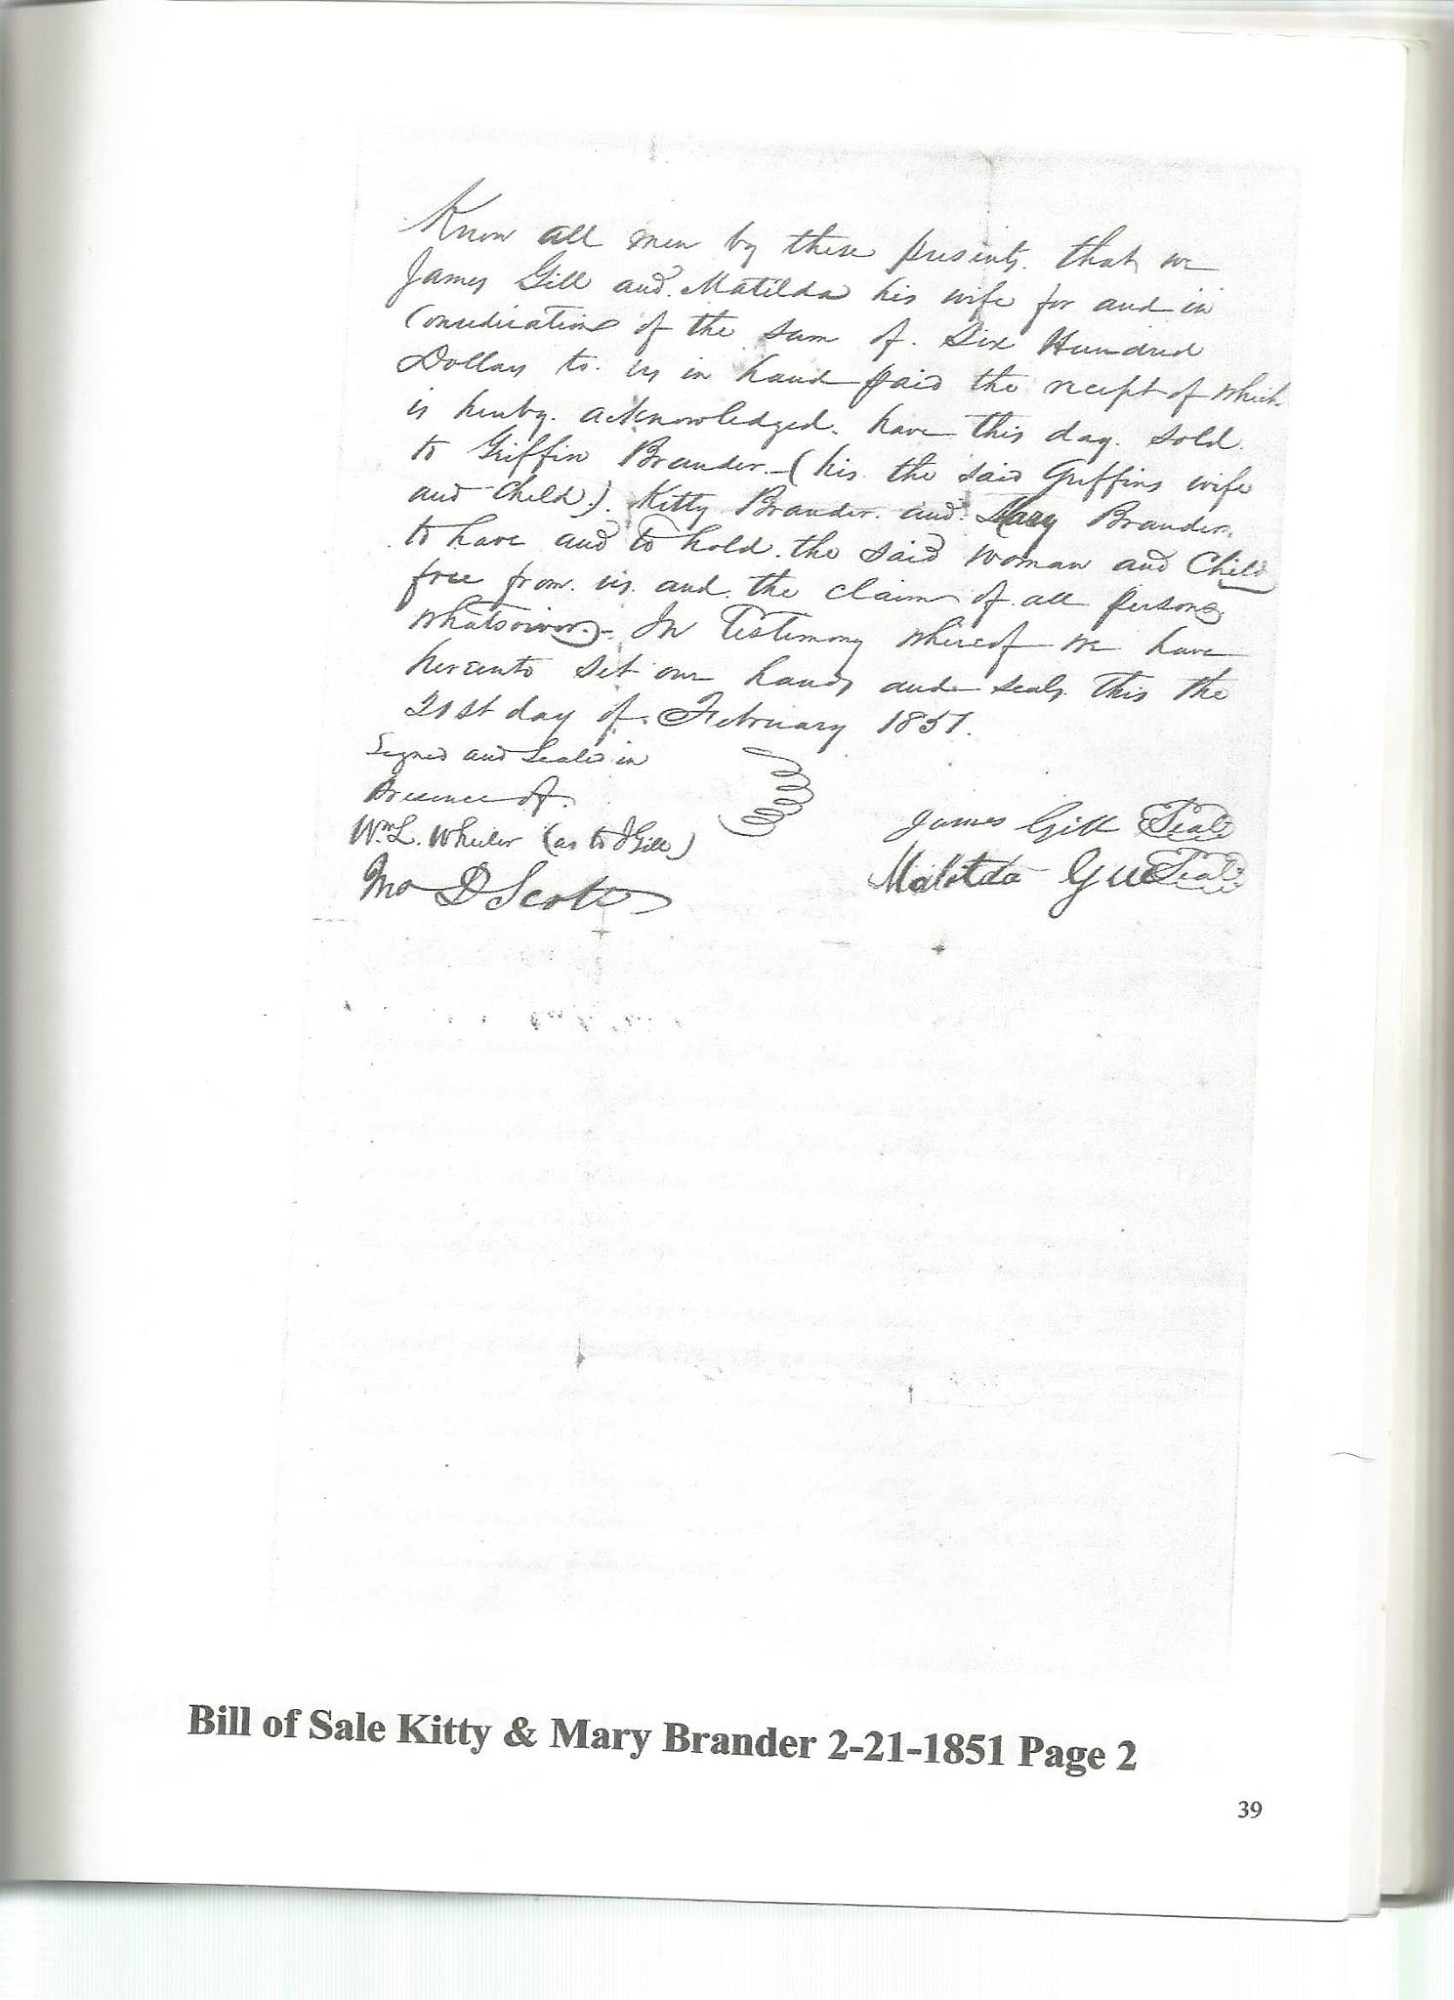 Know all men by these presents. that we
James Gill and Matilda his wife for and in
Consideration of the sum of. Six Hundred
Dollars to us in hand paid the receipt of which
is hereby. acknowledged. have this day. sold.
to Griffin Brander.- (his. the said Griffins wife
and Child.). Kitty Brander. and. Mary Brander.
to have and to hold. the said woman and Child
free from. us. and. the claim of all persons
whatsoever.- In Testimony whereof we have
hereunto set our hands and seals. this the
21st day of. February 1851.
Signed and Sealed in
Presence of.
Wm L. Wheeler (as to J Gill)
James Gill Seal
Jno D Scott
Matilda Gill Seal
Bill of Sale Kitty & Mary Brander 2-21-1851 Page 2
39